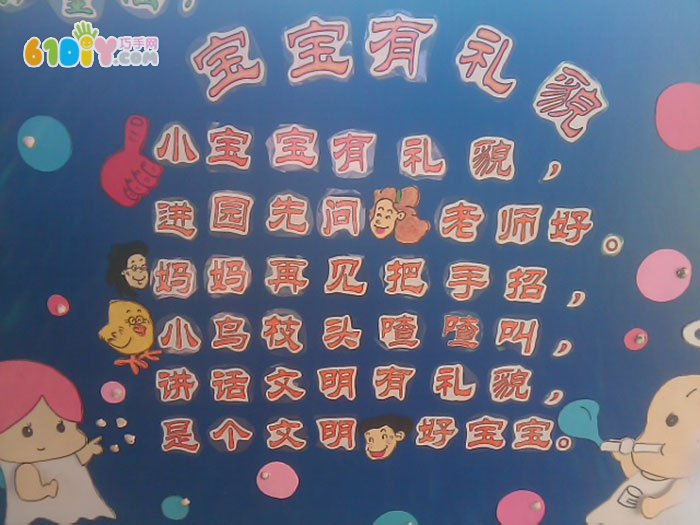 61DIY巧手网
.com
宝宝有礼貌
小宝宝有礼貌，
进园先问老师好。
妈妈再见把手招，
小鸟枝头喳喳叫，
讲话文明有礼貌，
是个文明好宝宝。